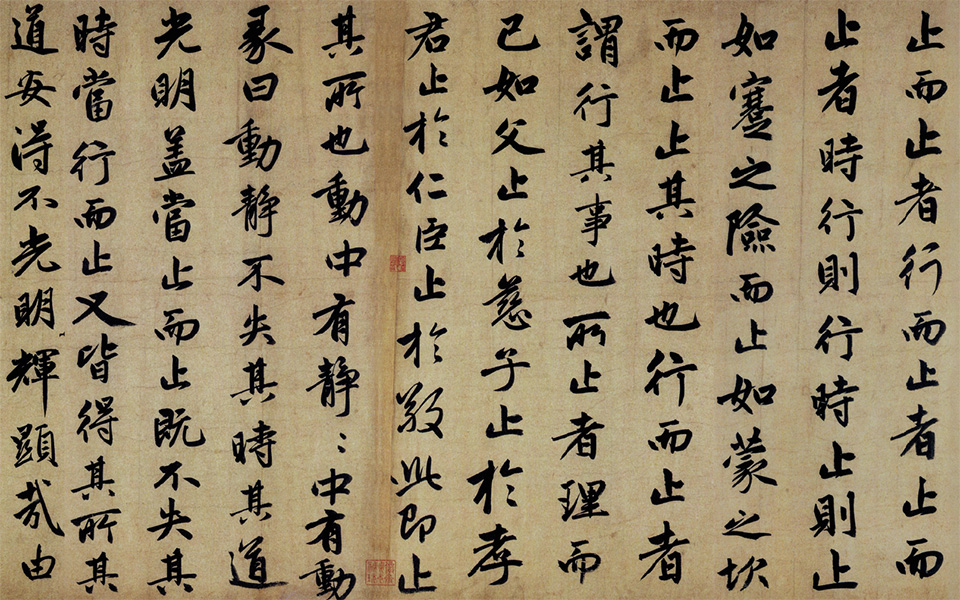 止而止者行而止者止而
止者時行則行時止則止
如蹇之險而止如蒙之坎
而止止其時也行而止者
謂行其事也所止者理而
已如父止於慈子止於孝
君止於仁臣止於敬此即止
其所也動中有靜〻中有動
彖曰動靜不失其時其道
光明盖當止而止既不失其
時當行而止又皆得其所其
道安得不光明輝顯哉由